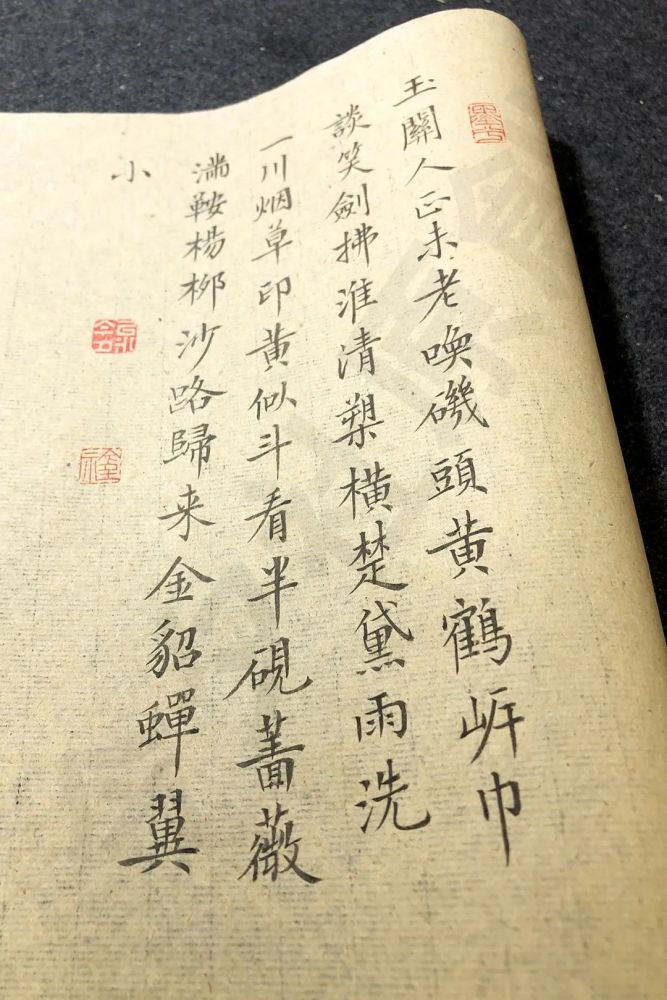 玉關人正未老喚磯頭黃鶴岸巾
談笑劍拂淮清槊橫楚黛雨洗
一川烟草印黃似斗看半硯蔷薇
滿鞍楊柳沙路歸来金貂蟬翼
小